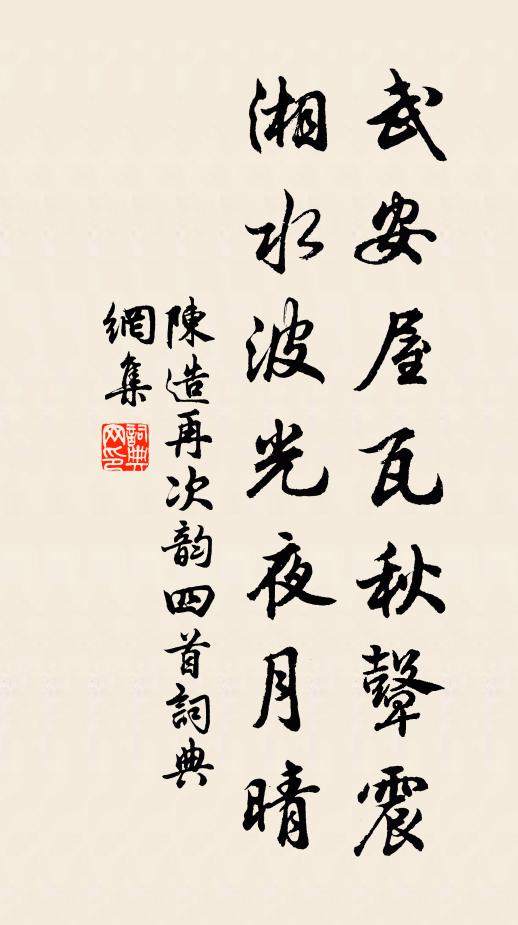 武安屋瓦秋聲震
湘水波光夜月晴
陳造再次韵四首詞典
網集
詞典網印